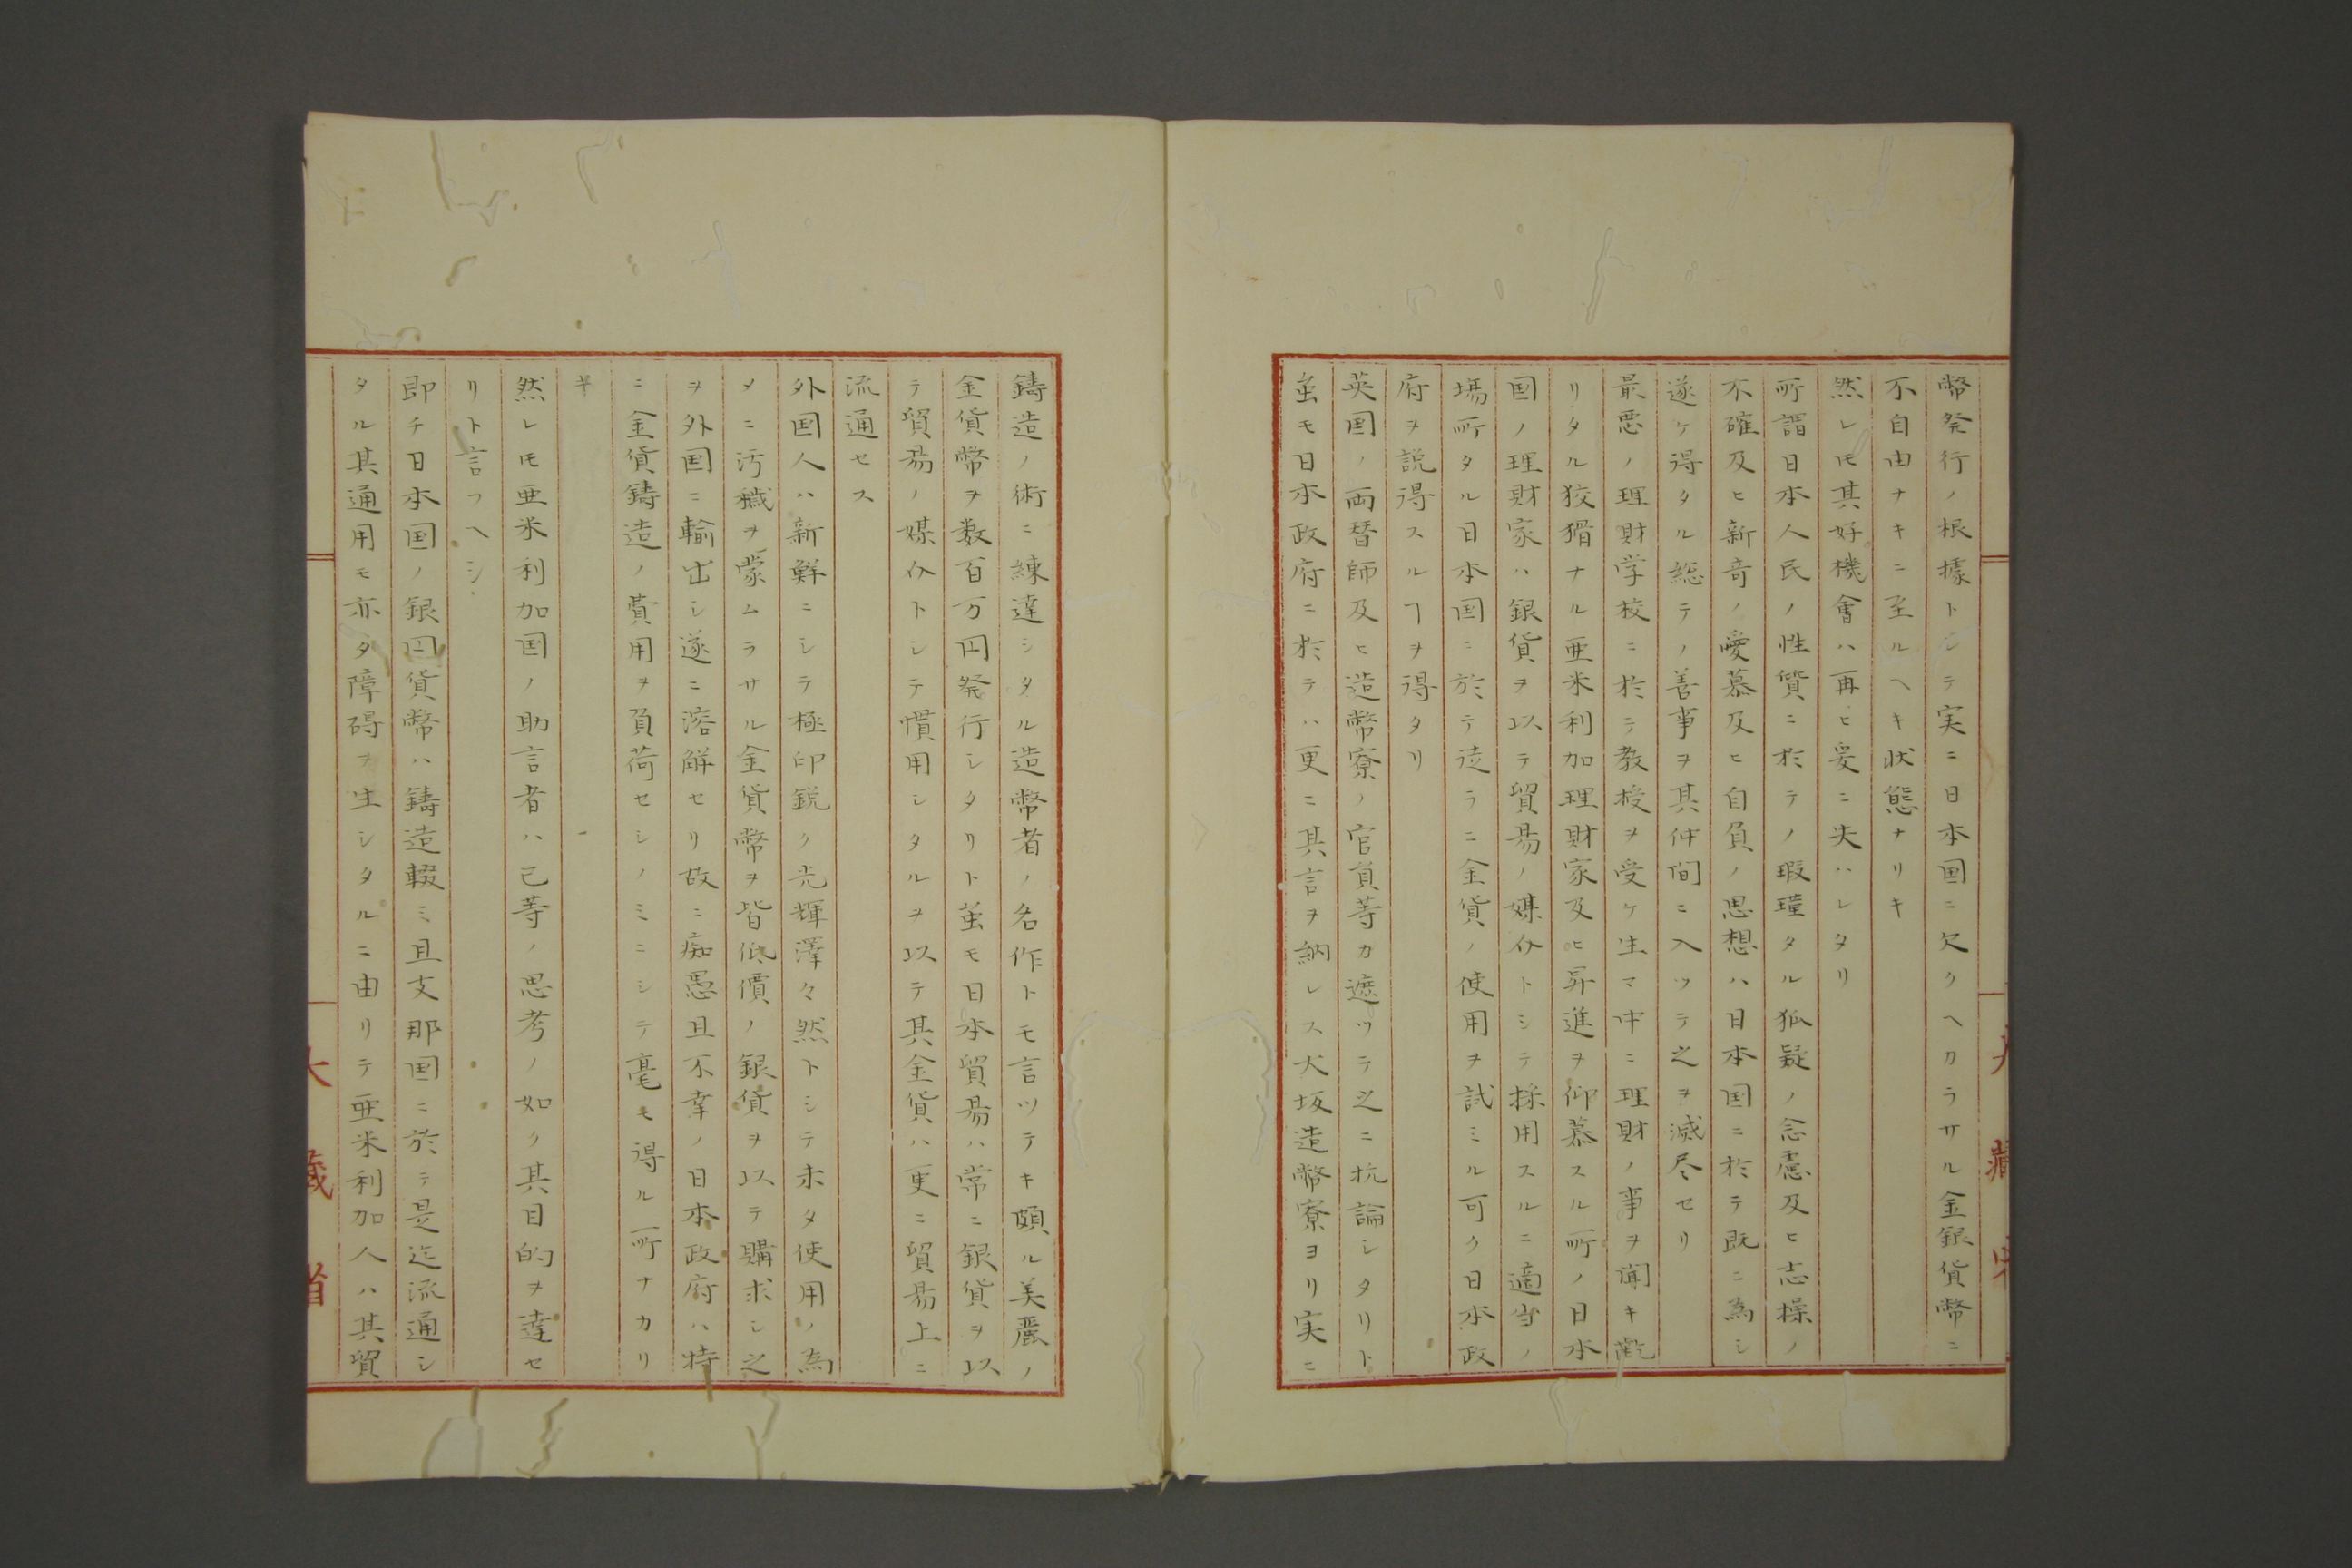 幣発行ノ根據トシテ実ニ日本国ニ欠クヘカラサル金銀貨幣ニ
不自由ナキニ至ルヘキ状態ナリキ
然レ𪜈其好機會ハ再ヒ妄ニ失ハレタリ
所謂日本人民ノ性質ニ於テノ瑕瑾タル狐疑ノ念慮及ヒ志操ノ
不確及ヒ新奇ノ愛慕及ヒ自負ノ思想ハ日本国ニ於テ既ニ為シ
遂ケ得タル総テノ善事ヲ其仲間ニ入ツテ之ヲ滅尽セリ
最悪ノ理財学校ニ於テ教授ヲ受ケ生マ中ニ理財ノ事ヲ聞キ齕
リタル狡猾ナル亜米利加理財家及ヒ昇進ヲ仰慕スル所ノ日本
国ノ理財家ハ銀貨ヲ以テ貿易ノ媒介トシテ採用スルニ適当ノ
場所タル日本国ニ於テ徒ラニ金貨ノ使用ヲ試ミル可ク日本政
府ヲ説得スルヿヲ得タリ
英国ノ両替師及ヒ造幣寮ノ官員等カ遮ツテ之ニ抗論シタリト
雖モ日本政府ニ於テハ更ニ其言ヲ納レス大坂造幣寮ヨリ実ニ
鋳造ノ術ニ練達シタル造幣者ノ名作トモ言ツテキ頗ル美麗ノ
金貨幣ヲ数百万円発行シタリト雖モ日本貿易ハ常ニ銀貨ヲ以
テ貿易ノ媒介トシテ慣用シタルヲ以テ其金貨ハ更ニ貿易上ニ
流通セス
外国人ハ新鮮ニシテ極印鋭ク光輝澤々然トシテ未タ使用ノ為
メニ汚穢ヲ蒙ムラサル金貨幣ヲ皆低價ノ銀貨ヲ以テ購求シ之
ヲ外国ニ輸出シ遂ニ溶解セリ故ニ痴愚且不幸ノ日本政府ハ特
ニ金貨鋳造ノ費用ヲ負荷セシノミニシテ毫モ得ル所ナカリ
キ
然レ𪜈亜米利加国ノ助言者ハ己等ノ思考ノ如ク其目的ヲ達セ
リト言フヘシ
即チ日本国ノ銀円貨幣ハ鋳造輟ミ且支那国ニ於テ是迄流通シ
タル其通用モ亦タ障碍ヲ生シタルニ由リテ亜米利加人ハ其貿
大蔵省